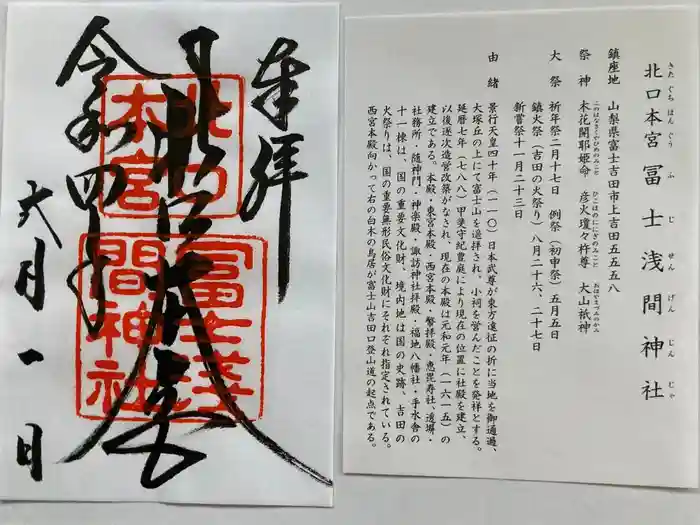 奉拝
北口本宮
令和四年
六月一日
北口
本宮
冨士浅
間神社
きたぐちほんぐうふじせんげんじんじゃ
北口本宮冨士浅間神社
鎮座地 山梨県富士吉田市上吉田五五五八
このはなさくやひめのみこと ひこほのににぎのみこと おおやまづみのかみ
祭神 木花開耶姫命 彦火瓊々杵尊 大山祇神
大祭 祈年祭二月十七日 例祭（初申祭）五月五日
鎮火祭（吉田の火祭り）八月二十六、二十七日
新嘗祭十一月二十三日
由緒 景行天皇四十年（一一〇）日本武尊が東方遠征の折に当地を御通過、
大塚丘の上にて富士山を遥拝され、小祠を営んだことを発祥とする。
延暦七年（七八八）甲斐守紀豊庭により現在の位置に社殿を建立、
以後逐次造営改築がなされ、現在の本殿は元和元年（一六一五）の
建立である。本殿・東宮本殿・西宮本殿・幣拝殿・恵毘寿社・透塀・
社務所・随神門・神楽殿・諏訪神社拝殿・福地八幡社・手水舎の
十一棟は、国の重要文化財、境内地は国の史跡、吉田の
火祭りは、国の重要無形民俗文化財にそれぞれ指定されている。
西宮本殿向かって右の白木の鳥居が富士山吉田口登山道の起点である。